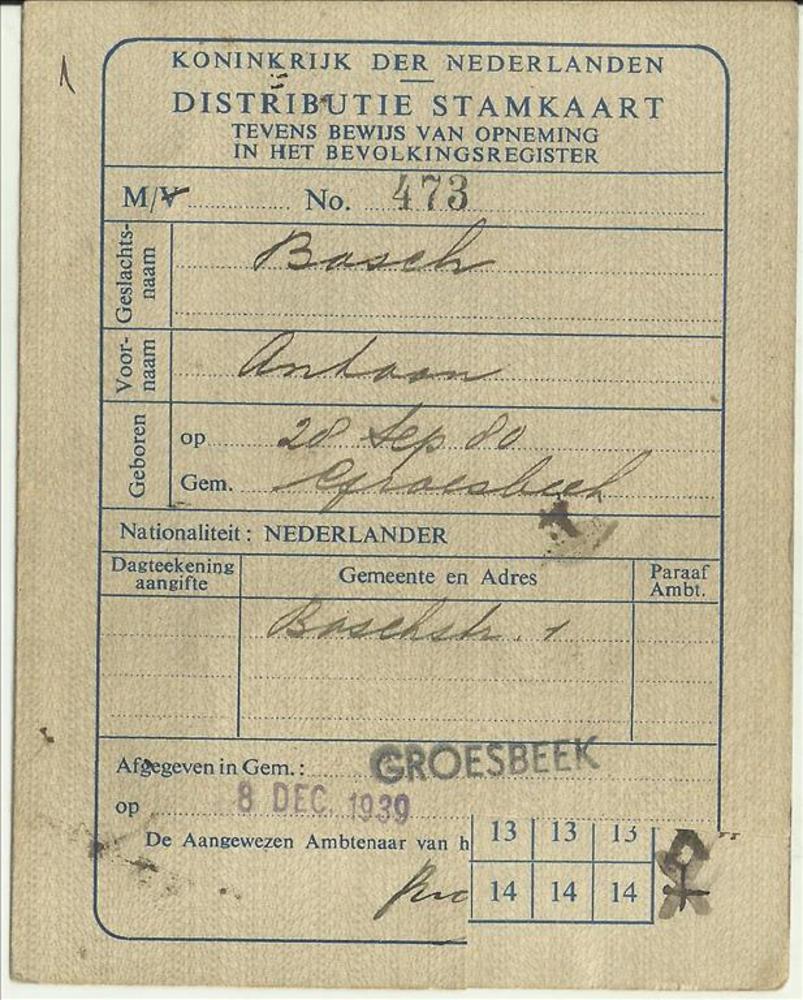 1
KONINKRIJK DER NEDERLANDEN
DISTRIBUTIE STAMKAART
TEVENS BEWIJS VAN OPNEMING
IN HET BEVOLKINGSREGISTER
M/V No. 473
Geslachts-
naam
Bosch
Voor-
naam
Antoon
Geboren
op 28 Sep 80
Gem. Groesbeek
Nationaliteit: NEDERLANDER
Dagteekening
aangifte
Gemeente en Adres
Paraaf
Ambt.
Boschstr. 1
Afgegeven in Gem.: GROESBEEK
op 8 DEC. 1939
De Aangewezen Ambtenaar van h
13 13 13
14 14 14